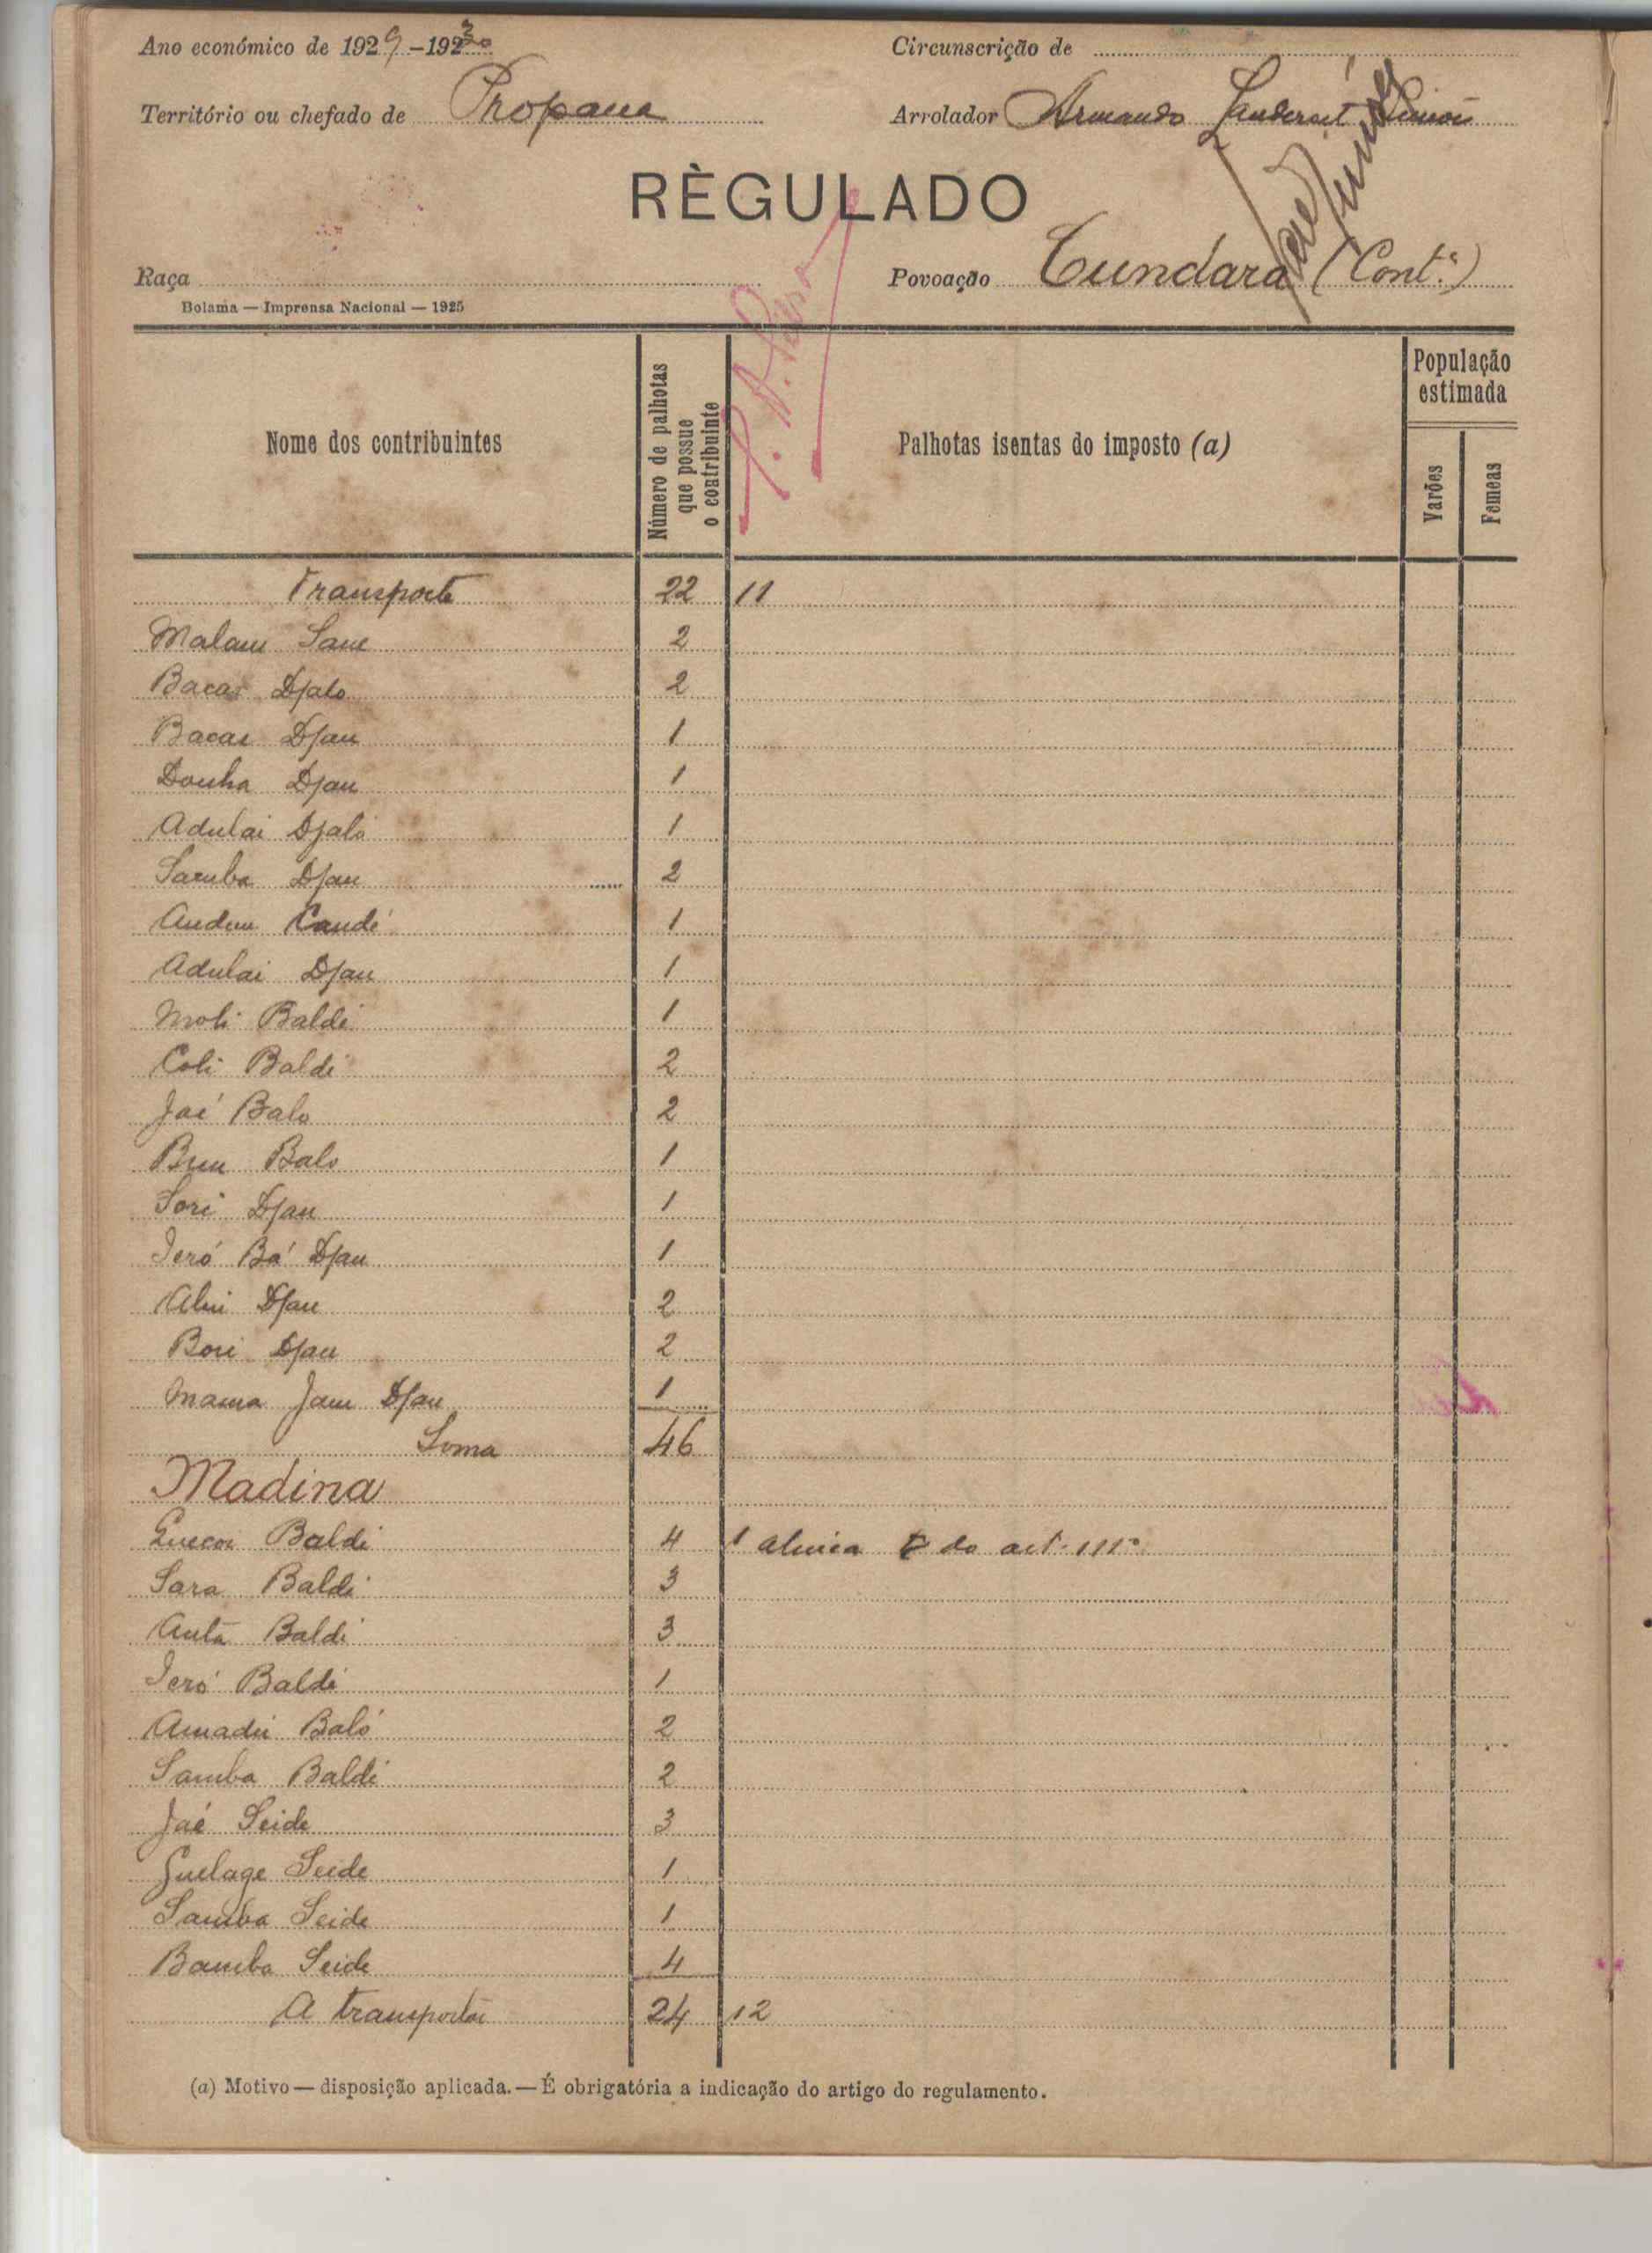 Ano económico de 1929-1930
Circunscrição de
Território ou chefado de Propana
Arrolador Armando
RÈGULADO
Raça
Povoação Cundara (Cont.ª)
Bolama — Imprensa Nacional — 1925
Nome dos contribuintes
Número de palhotas que possue o contribuinte
Palhotas isentas do imposto (a)
População estimada
Varões
Femeas
Transporte 22 11
Malam Sane 2
Bacar Djalo 2
Bacar Djau 1
Donha Djau 1
Adulai Djaló 1
Samba Djau 2
Candé 1
Adulai Djau 1
Moli Baldé 1
Coli Baldé 2
Jaé Balo 2
Balo 1
Sori Djau 1
Ieró Bá Djau 1
Djau 2
Bori Djau 2
Mama Jam Djau 1
Soma 46
Madina
Baldé 4 1 alinea do art. 111º
Sara Baldé 3
Anta Baldé 3
Ieró Baldé 1
Amadú Baló 2
Samba Baldé 2
Jaé Seide 3
Guelage Seide 1
Samba Seide 1
Bamba Seide 4
A transportar 24 12
(a) Motivo — disposição aplicada. — É obrigatória a indicação do artigo do regulamento.